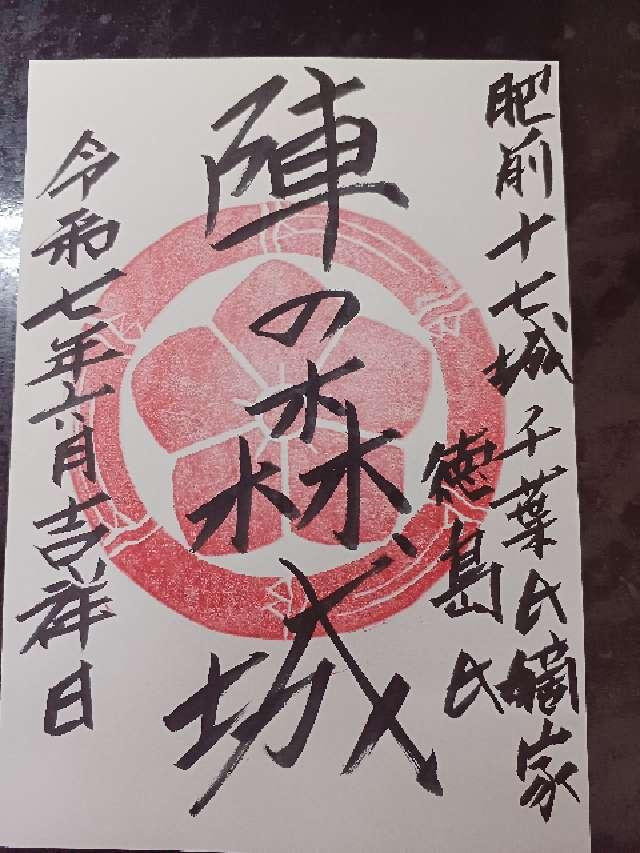 肥前十七城千葉氏嫡家
徳島氏
陣の森城
令和七年六月吉祥日